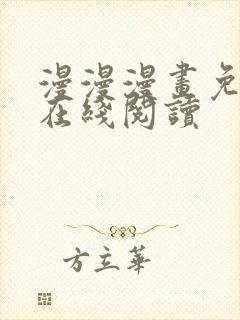 漫漫漫畫免
在綫閱讀
方立華